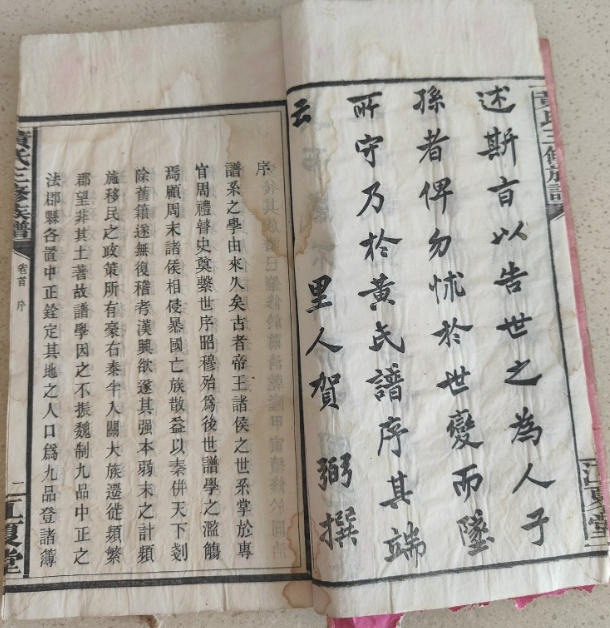 黃氏三修族譜
江夏堂
述斯言以告世之為人子
孫者俾勿怵於世變而墜
所守乃於黃氏譜序其端
云
里人賀弻撰
序
譜系之學由來久矣古者帝王諸侯之世系掌於專
官周禮瞽史奠繫世序昭穆殆爲後世譜學之濫觴
焉顧周末諸侯相侵暴國亡族散益以秦併天下剗
除舊籍遂無復稽考漢興欲遂其强本弱末之計頻
施移民之政策所有豪右秦半入關大族遷徙頻繁
郡望非其土著故譜學因之不振魏制九品中正之
法郡縣各置中正銓定其地之人口爲九品登諸簿
黃氏三修族譜
卷首 序
二
江夏堂